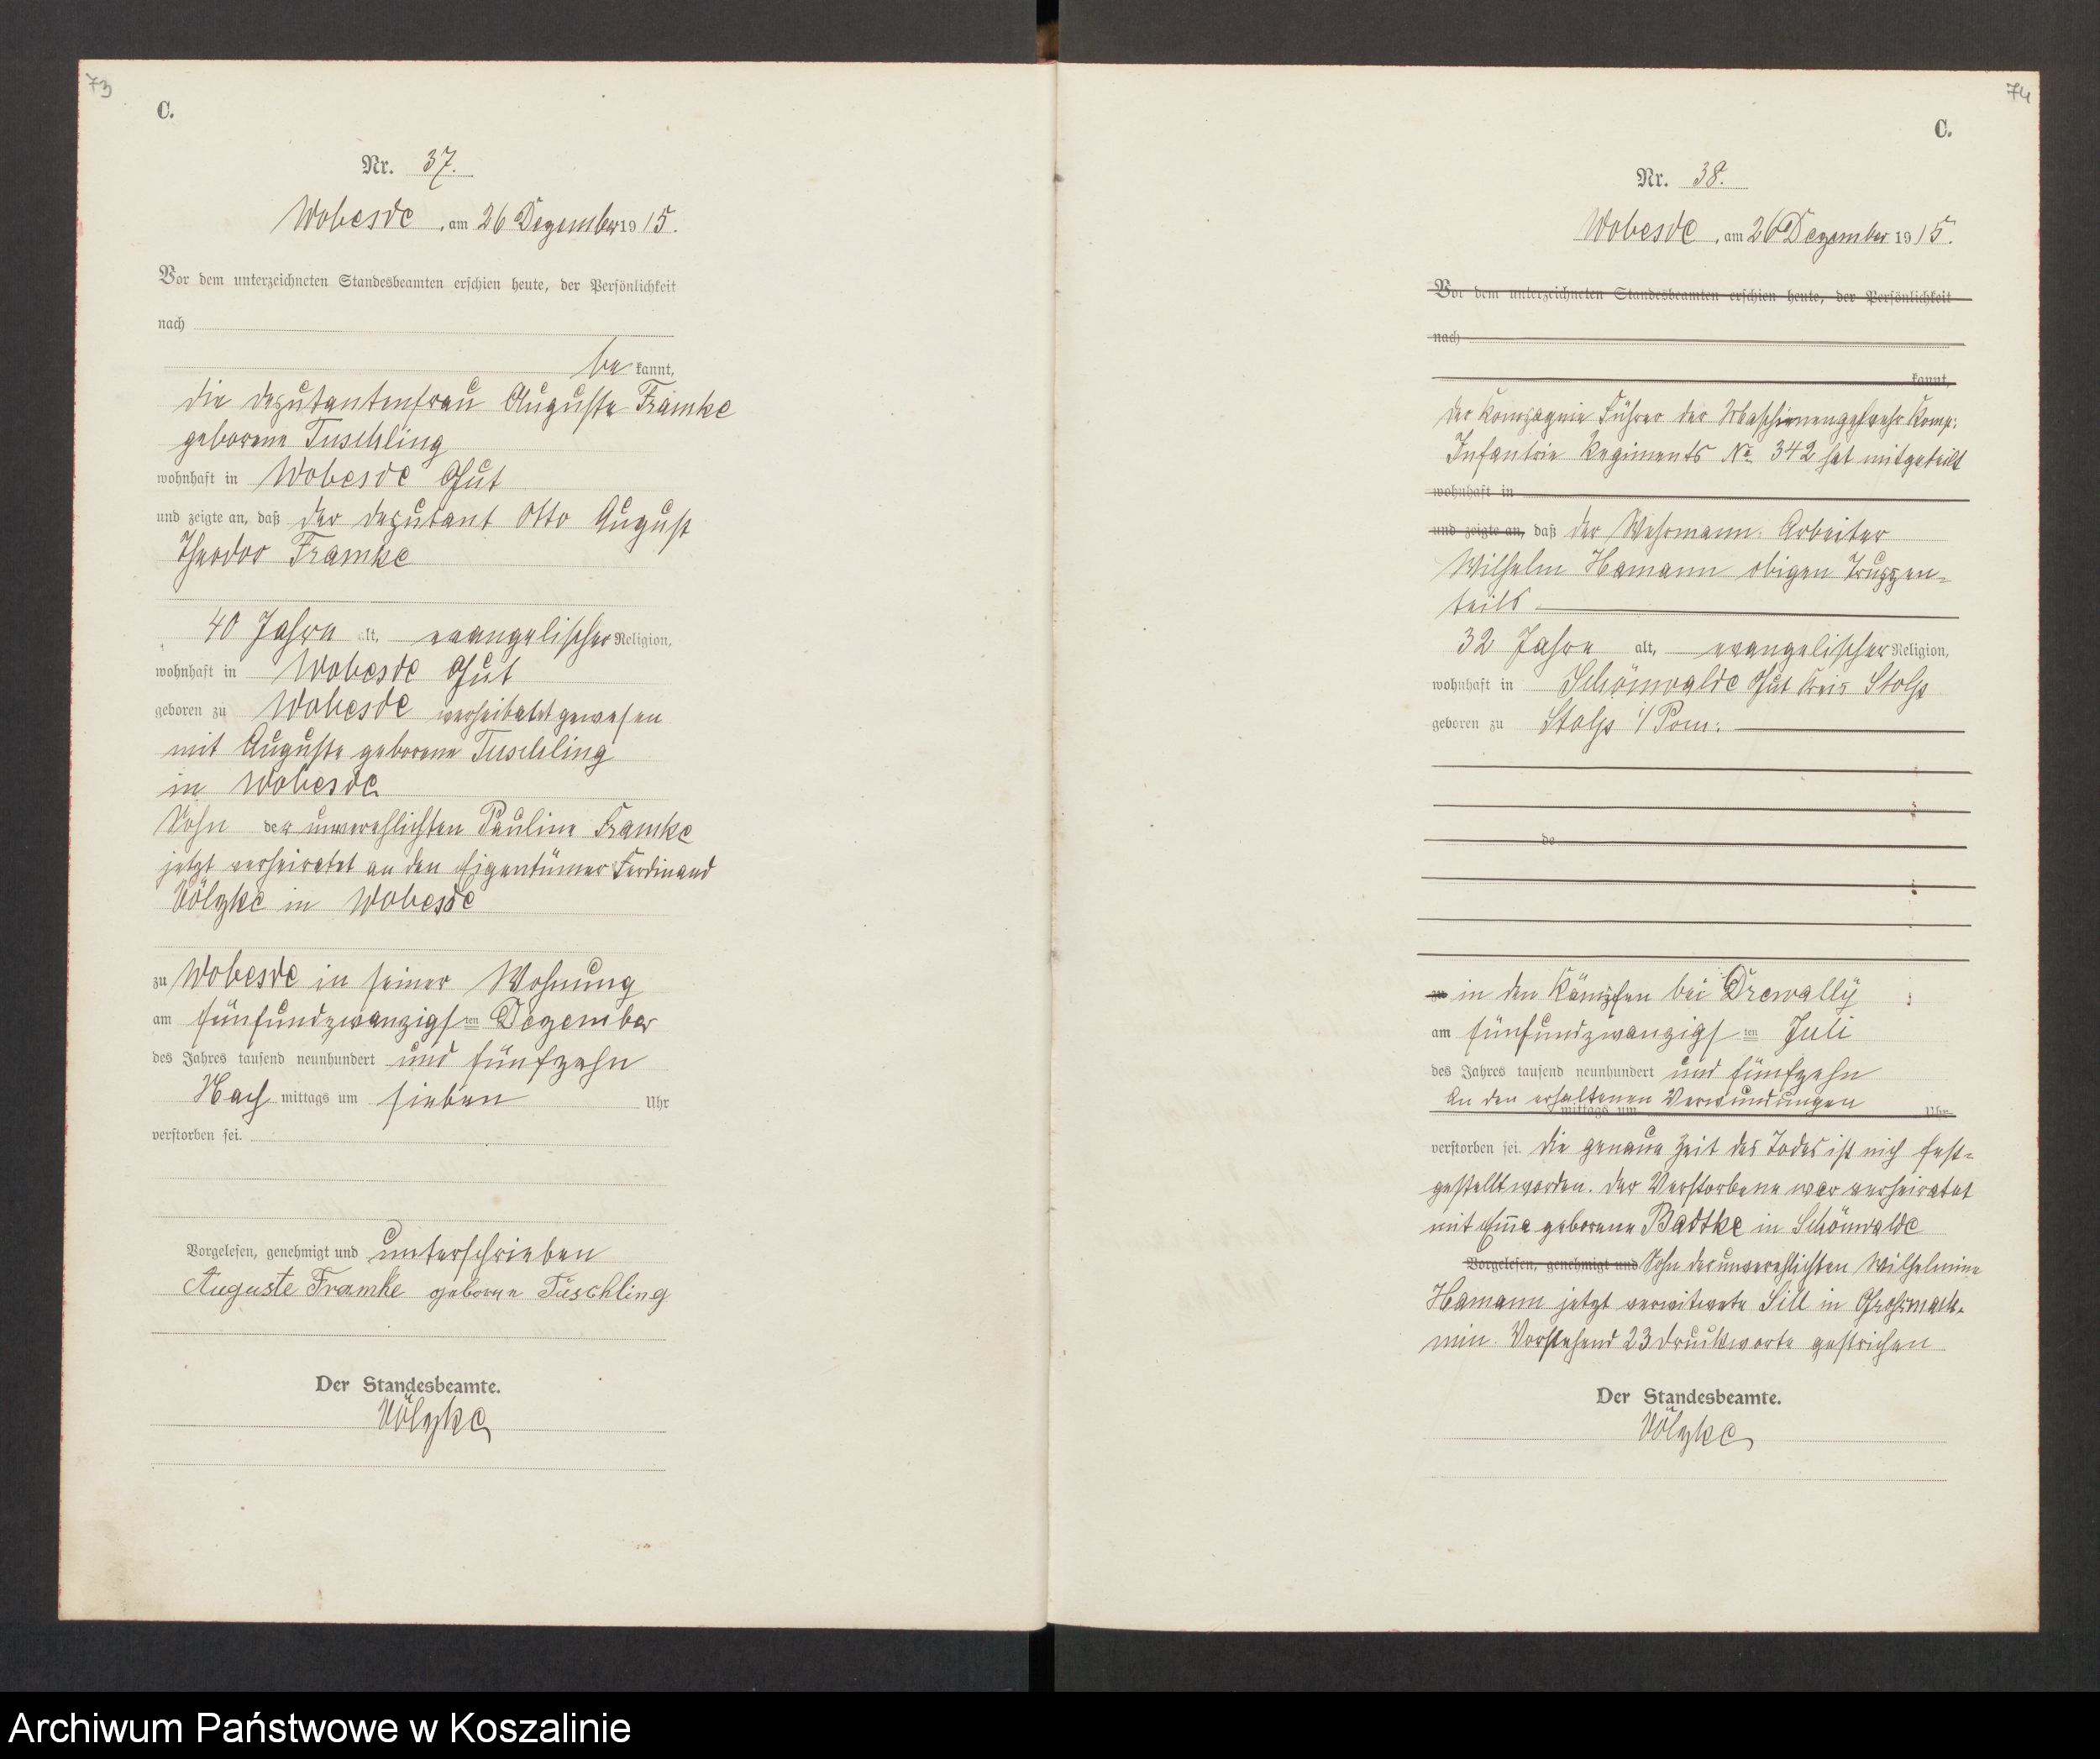 73
C.
Nr. 37.
Wobesde, am 26 Dezember 1915.
Vor dem unterzeichneten Standesbeamten erschien heute, der Persönlichkeit
nach
be kannt,
die Deputantenfrau Auguste Framke
geborene Tuschling
wohnhaft in Wobesde Gut
und zeigte an, daß der Deputant Otto August
Theodor Framke
40 Jahre alt, evangelischer Religion,
wohnhaft in Wobesde Gut
geboren zu Wobesde verheiratet gewesen
mit Auguste geborene Tuschling
in Wobesde
Sohn der unverehlichten Pauline Framke
jetzt verheiratet an den Eigentümer Ferdinand
Völzke in Wobesde
zu Wobesde in seiner Wohnung
am fünfundzwanzigsten Dezember
des Jahres tausend neunhundert und fünfzehn
Nach mittags um sieben Uhr
verstorben sei.
Vorgelesen, genehmigt und unterschrieben
Auguste Framke geborne Tuschling
Der Standesbeamte.
Völzke
74
C.
Nr. 38.
Wobesde, am 26 Dezember 1915.
Vor dem unterzeichneten Standesbeamten erschien heute, der Persönlichkeit
nach
kannt,
Der Kompagnie Führer der Maschinengewehr Komp:
Infantrie Regiments No. 342 hat mitgeteilt
wohnhaft in
und zeigte an, daß der Wehrmann: Arbeiter
Wilhelm Hamann obigen Truppen-
teils
32 Jahre alt, evangelischer Religion,
wohnhaft in Schönwalde Gut Kreis Stolp
geboren zu Stolp i/ Pom:
de
zu in den Kämpfen bei Drewally
am fünfundzwanzigsten Juli
des Jahres tausend neunhundert und fünfzehn
An den erhaltenen Verwundungen
mittags um Uhr
verstorben sei. Die genaue Zeit des Todes ist nich fest-
gestellt worden. Der Verstorbene war verheiratet
mit Em̅a geborene Badtke in Schönwalde
Vorgelesen, genehmigt und Sohn der unverehlichten Wilhelmine
Hamann jetzt verwitwete Sill in Großmach-
min. Vorstehend 23 Druckworte gestrichen
Der Standesbeamte.
Völzke
Archiwum Państwowe w Koszalinie